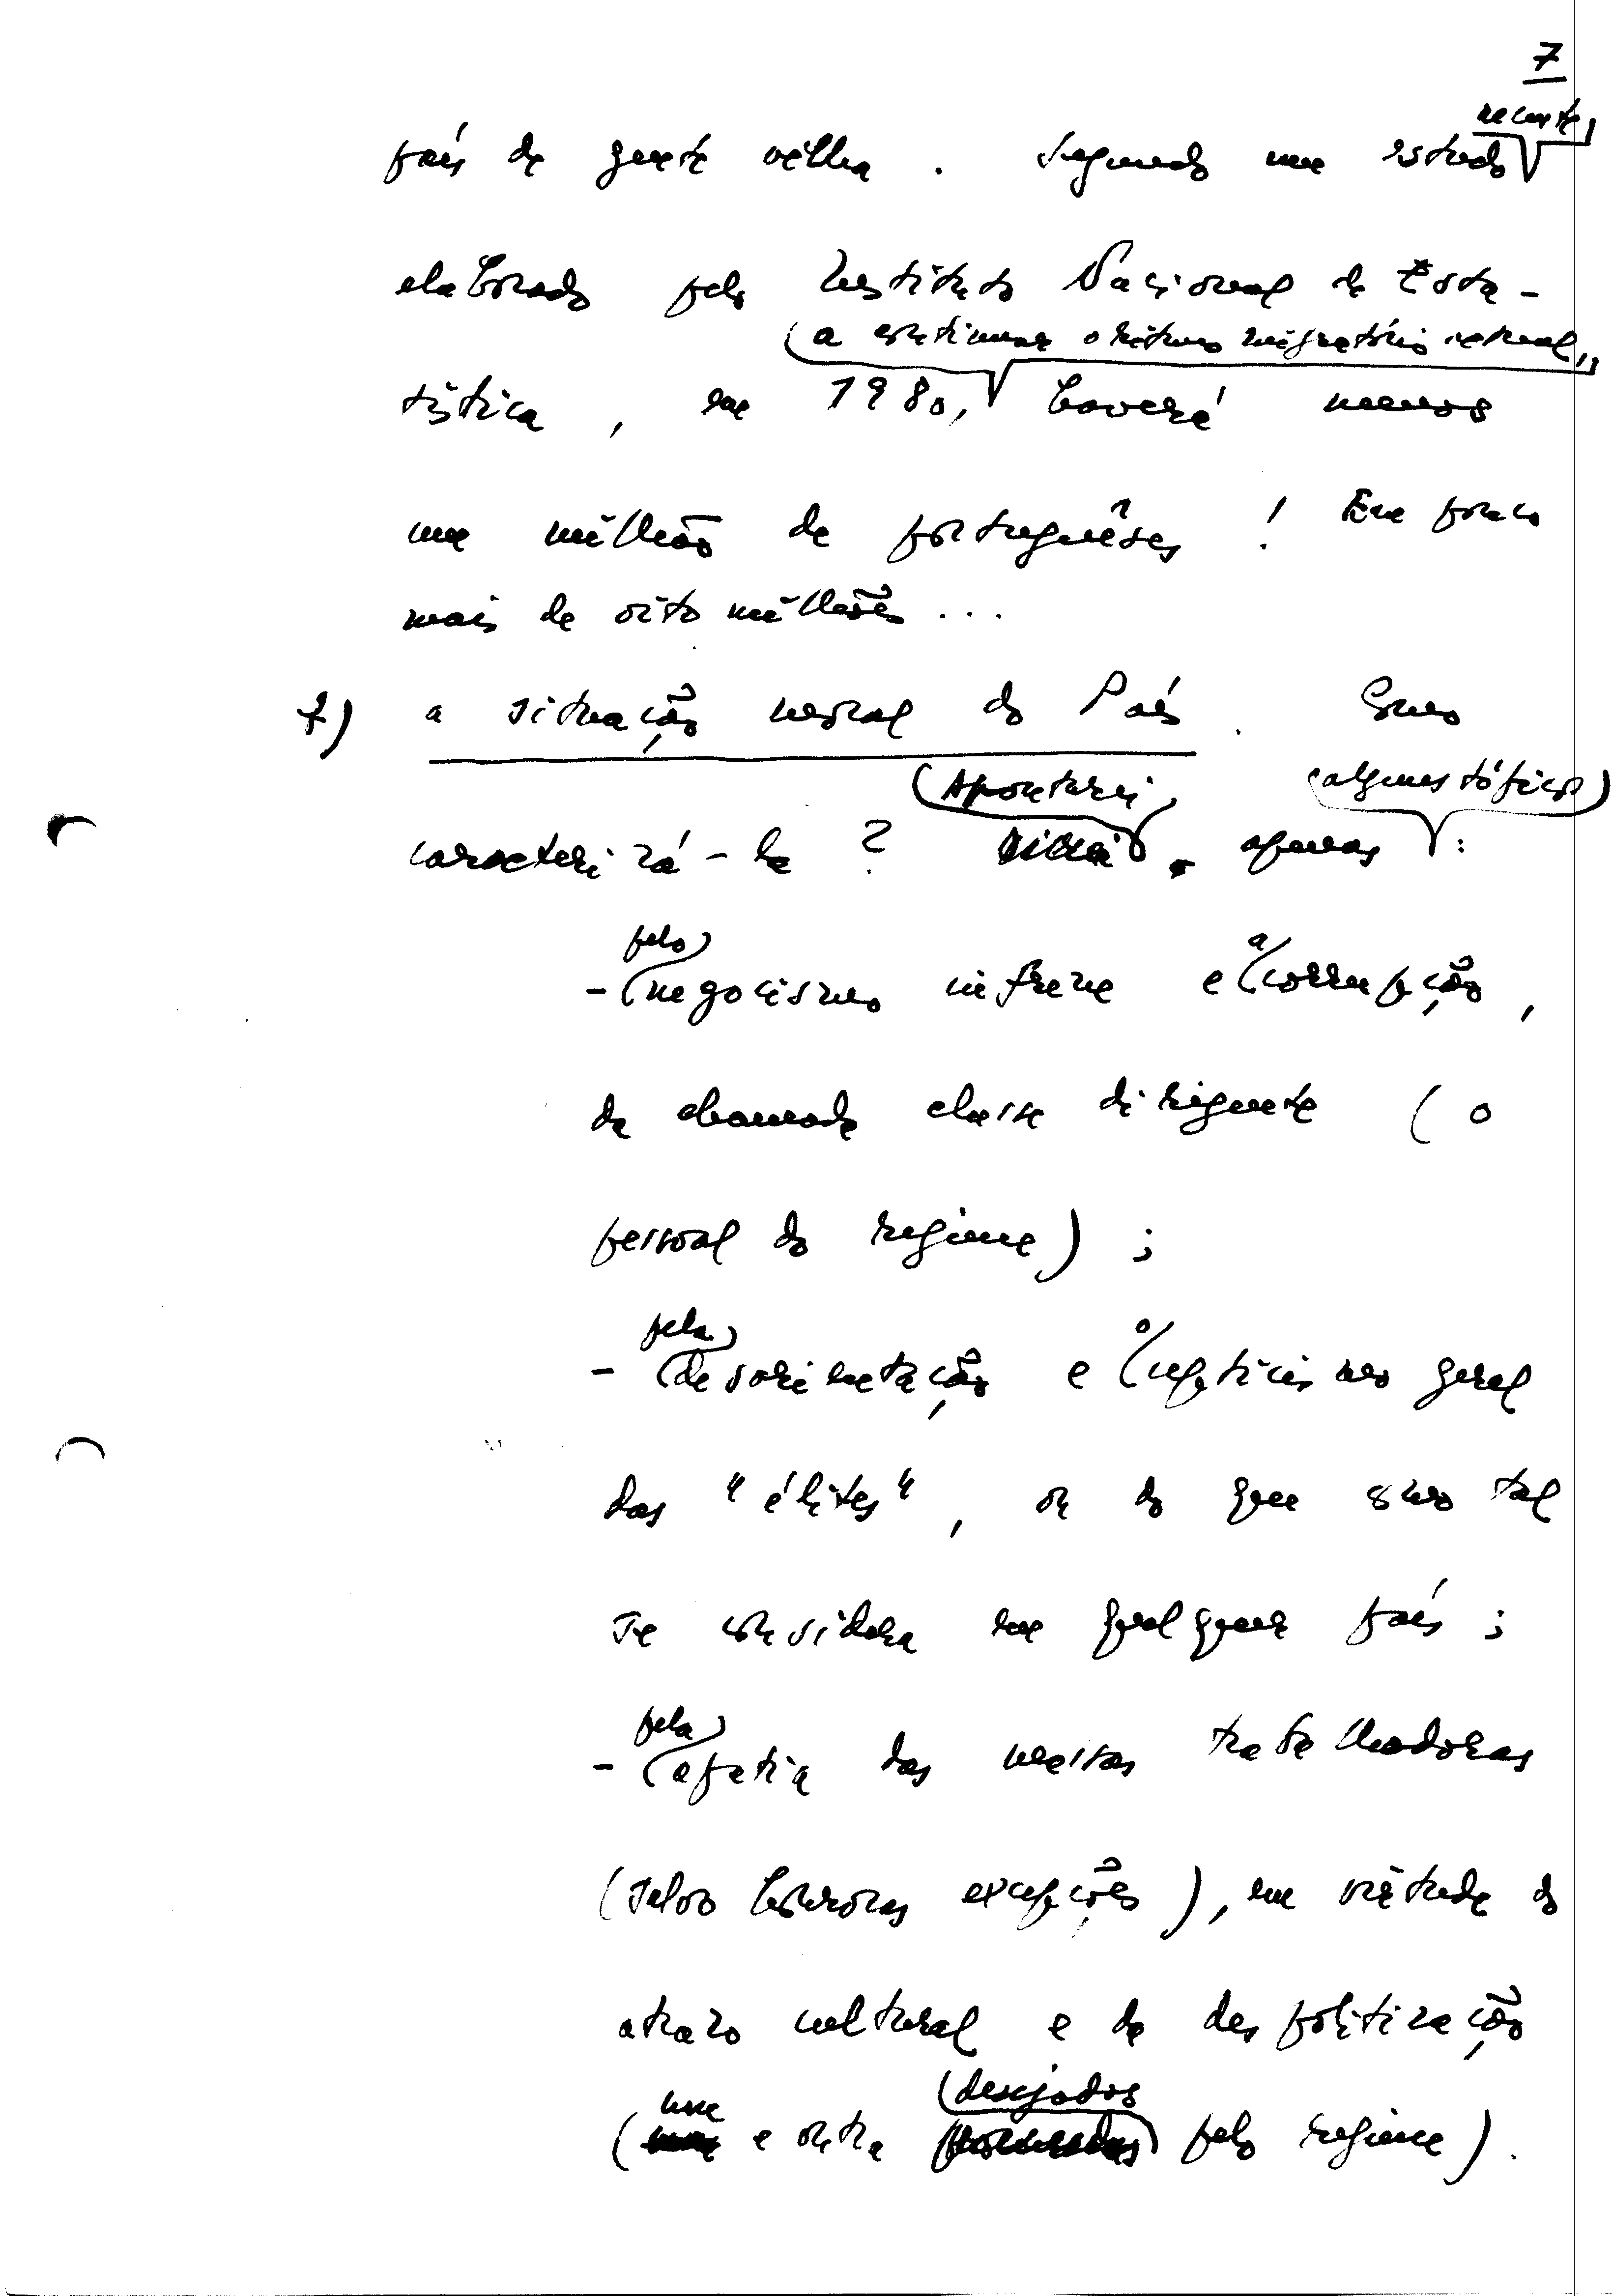 7
recente,
país de gente velha. Segundo um estudo
elaborado pelo Instituto Nacional de Esta-
a continuar o ritmo migratório actual,
tística, em 1980, haverá menos
um milhão de portugueses! Em pouco
mais de oito milhões...
f) a situação moral do País. Como
Apontarei, alguns tópicos
caracterizá-la? Direi, apenas:
pelo a
- negocismo infrene e corrupção,
da chamada classe dirigente (o
pessoal do regime);
pela o
- desorientação e cepticismo geral
das "élites", ou do que como tal
se considera em qualquer país;
pela
- apatia das massas trabalhadoras
(salvo honrosas excepções), em virtude do
atrazo cultural e da despolitização
um desejados
( e outra pelo regime).